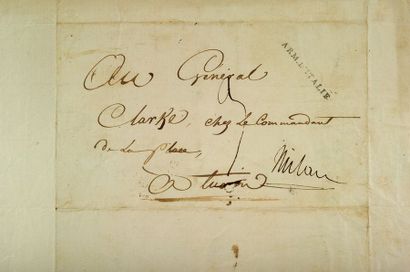 ARM. D'ITALIE
Au Général
Clarke, chez Le Commandant
de La place,
A turin
Milan